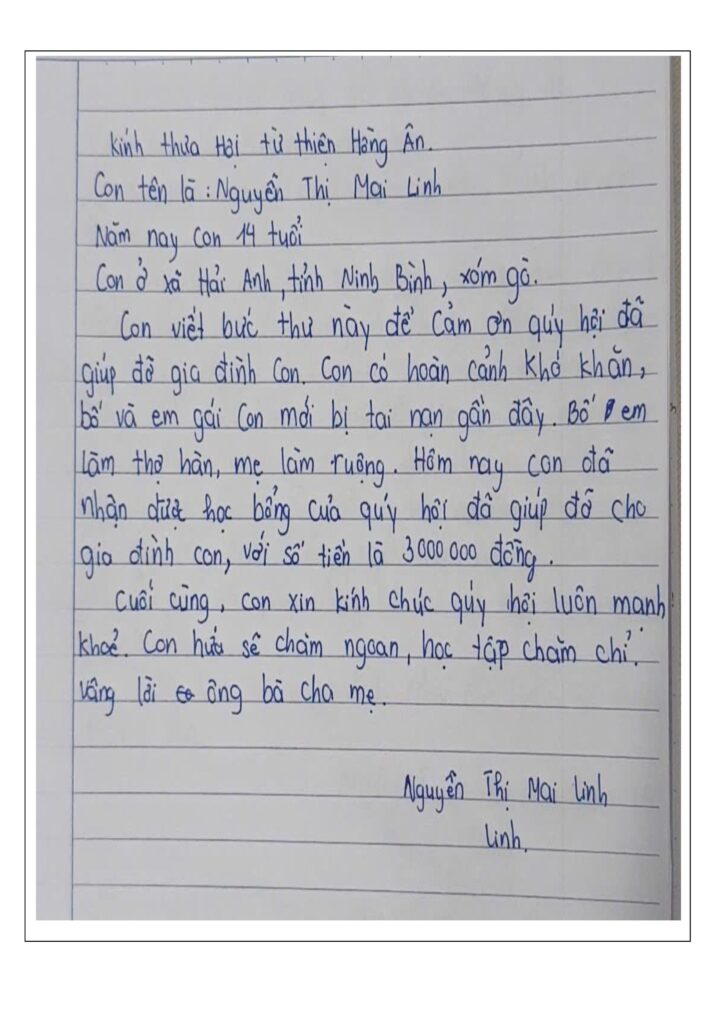 Kính thưa Hội từ thiện Hồng Ân.
Con tên là : Nguyễn Thị Mai Linh
Năm nay con 14 tuổi
Con ở xã Hải Anh, tỉnh Ninh Bình, xóm gò.
Con viết bức thư này để cảm ơn quý hội đã
giúp đỡ gia đình con. Con có hoàn cảnh khó khăn,
bố và em gái con mới bị tai nạn gần đây. Bố em
làm thợ hàn, mẹ làm ruộng. Hôm nay con đã
nhận được học bổng của quý hội đã giúp đỡ cho
gia đình con, với số tiền là 3000000 đồng.
Cuối cùng, con xin kính chúc quý hội luôn mạnh
khoẻ. Con hứa sẽ chăm ngoan, học tập chăm chỉ.
vâng lời ông bà cha mẹ.
Nguyễn Thị Mai Linh
Linh.